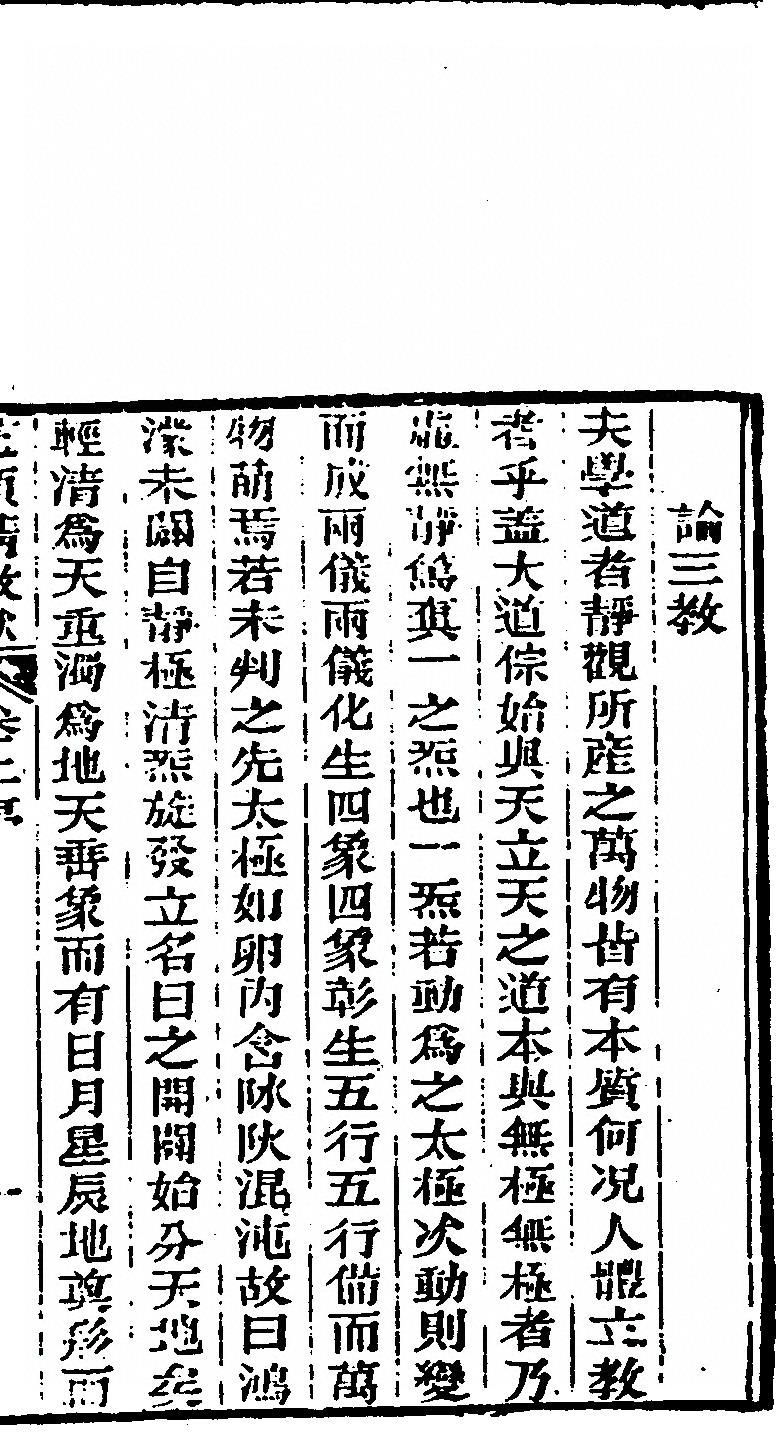 論三教
夫學道者靜觀所產之萬物皆有本質何况人體立教
者乎蓋大道倧始與天立天之道本與無極無極者乃
虛無靜篤眞一之炁也一炁若動爲之太極次動則變
而成兩儀兩儀化生四象四象彰生五行五行備而萬
物萌焉若未判之先太極如卵內含阥阦混沌故曰鴻
濛未闢自靜極清炁旋發立名曰之開闢始分天地矣
輕清爲天重濁爲地天垂象而有日月星辰地奠形而
卷上